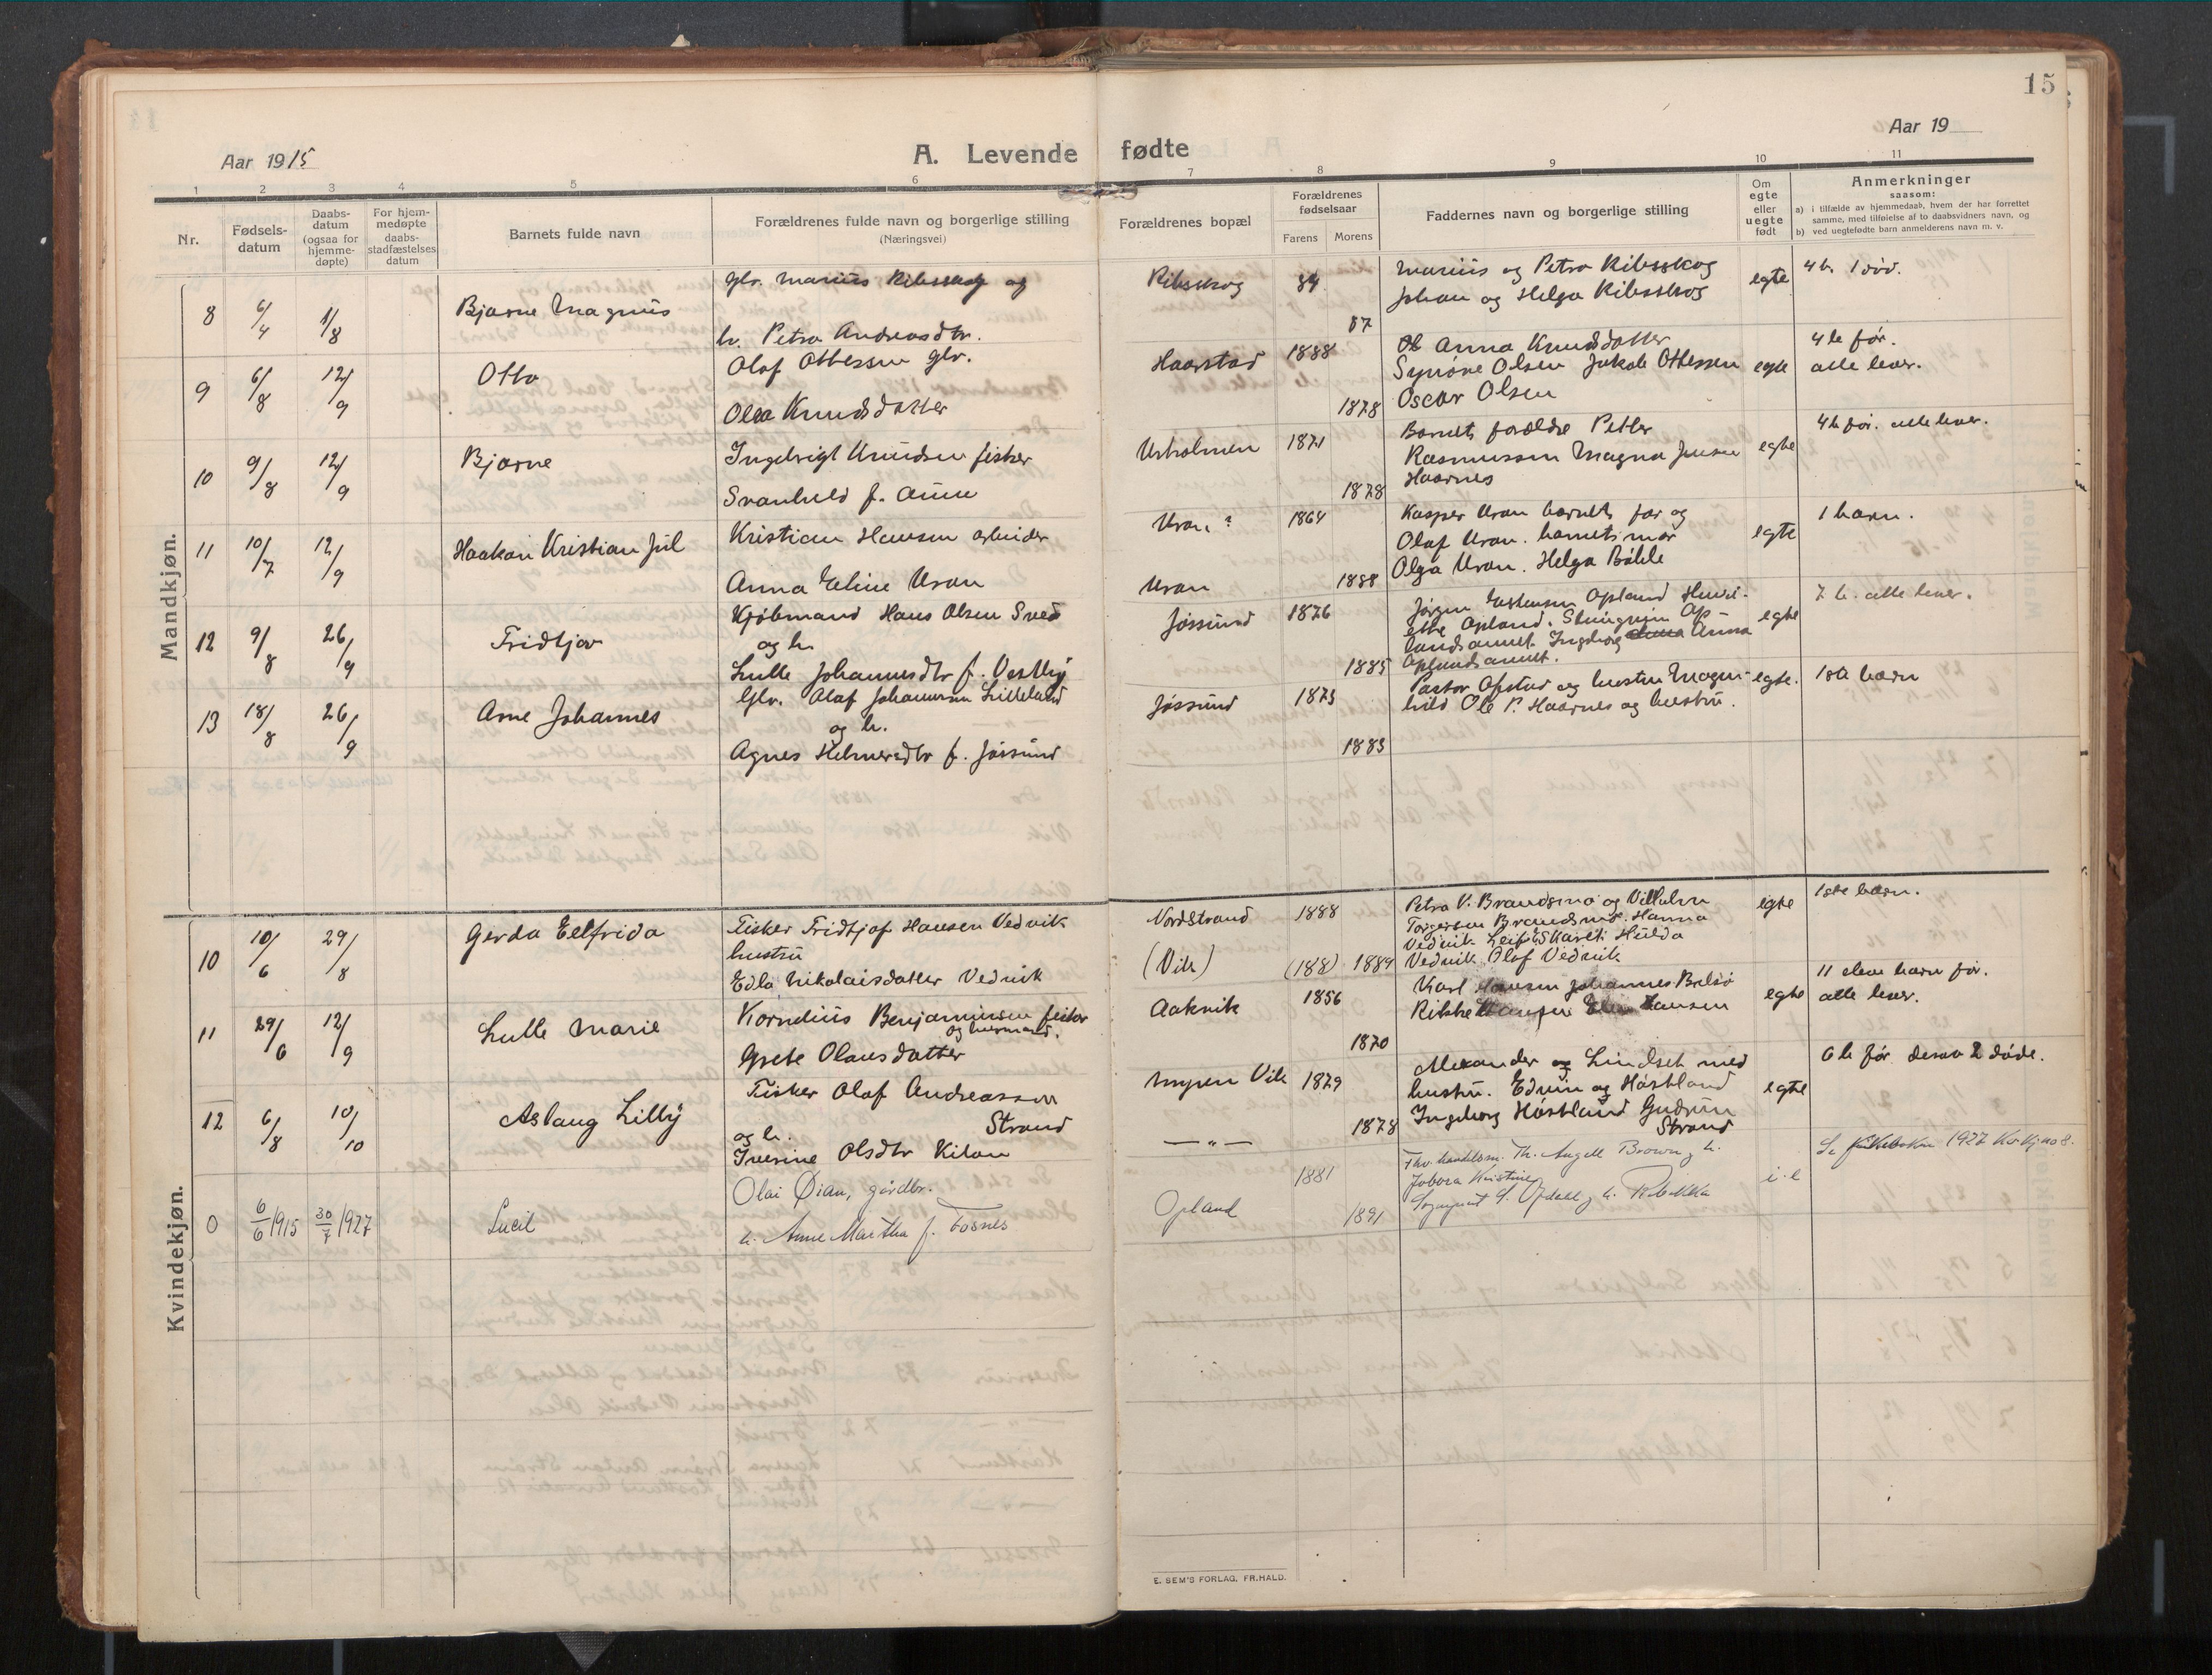 15
Aar 1915
A. Levende fødte
Aar 19
1 2 3 4 5 6 7 8 9 10 11
Nr.
Fødsels-
datum
Daabs-
datum
(ogsaa for
hjemme-
døpte)
For hjem-
medøpte
daabs-
stadfæstelses
datum
Barnets fulde navn
Forældrenes fulde navn og borgerlige stilling
(Næringsvei)
Forældrenes bopæl
Forældrenes
fødselsaar
Farens Morens
Faddernes navn og borgerlige stilling
Om
egte
eller
uegte
født
Anmerkninger
saasom:
a) i tilfælde av hjemmedaab, hvem der har forrettet
samme, med tilføielse af to daabsvidners navn, og
b) ved uegtefødte barn anmelderens navn m. v.
Mandkjøn.
8 6/4 1/8 Bjarne Magnus
Gbr. Marius Ribsskog og
h. Petra Andreasdtr.
Ribsskog 84
87
Marius og Petra Ribsskog
Johan og Helga Ribsskog
egte
4 b. 1 død.
9 6/8 12/9 Otto
Olaf Ottessen gbr.
Olea Knudsdatter
Haarstad 1888
1878
Anna Knudsdatter
Synøve Olsen Jakob Ottessen
Oscar Olsen
egte
4 b før.
alle lever.
10 9/8 12/9 Bjarne
Ingebrigt Knudsen fisker
Svanhild f. Aune
Urholmen 1871
1878
Barnets forældre Petter
Rasmussen Magna Jensen
Haarnes
egte
4 b før. alle lever.
11 10/7 12/9 Haakon Kristian Jul
Kristian Hansen arbeider
Anna Eline Uran
Uran ? 1864
Uran 1888
Kasper Uran barnets far og
Olaf Uran. barnets mor
Olga Uran. Helga Bøhle
egte
1 barn.
12 9/8 26/9 Fridtjov
Kjøbmand Hans Olsen Sved
og h.
Lulle Johannesdtr f. Vestby
Jøssund 1876
1885
Jørgen Opland
ette Opland. Steingrim Op-
landsaunet. Ingeborg Anna
Oplandsaunet.
egte
7 b. alle lever.
13 18/8 26/9 Arne Johannes
Gbr. Olaf Johannesen Lilleland
og h.
Agnes Helmersdtr f. Jøssund
Jøssund 1873
1883
Pastor Opstad og hustru Magn-
hild Ole P. Haarnes og hustru.
egte.
1ste barn
Kvindekjøn.
10 10/6 29/8 Gerda Elfrida
Fisker Fridtjof Hansen Vedvik
hustru
Edla Nikolaisdatter Vedvik
Nordstrand 1888
(Vik) (188) 1884
Petra V. Brandsmo og Vilhelm
Torgersen Brandsmo. Hanna
Vedvik Leif Hulda
Vedvik Olaf Vedvik
egte
1ste barn.
11 29/6 12/9 Lulle Marie
Kornelius Benjaminsen fisker
og husmand.
Grete Olausdatter
Aakvik 1856
1870
Karl Hansen Johannes Brelsø
Rikke Hansen
egte
11 eleve barn før.
alle lever.
12 6/8 10/10 Aslaug Lilly
Fisker Olaf Andreassen
Strand
og h.
Iverine Olsdtr Kilan
Myren Vik 1879
— " — 1878
Alexander og Lindset med
hustru. Edvin og Høstland
Ingeborg Høstland Gudrun
Strand
egte
6 b før derav 2 døde.
0 6/6 1915 30/7 1927 Lucil
Olai Øian, gårdbr.
h. Anne Martha f. Fosnes
Opland 1881
1891
Fhv. handelsm. Th. Angell Brown og h.
Jobora Kristine
Sogneprest S. Opdal og h. Rebekka
i. e
Se 1927 no 8.
E. SEM'S FORLAG, FR.HALD.